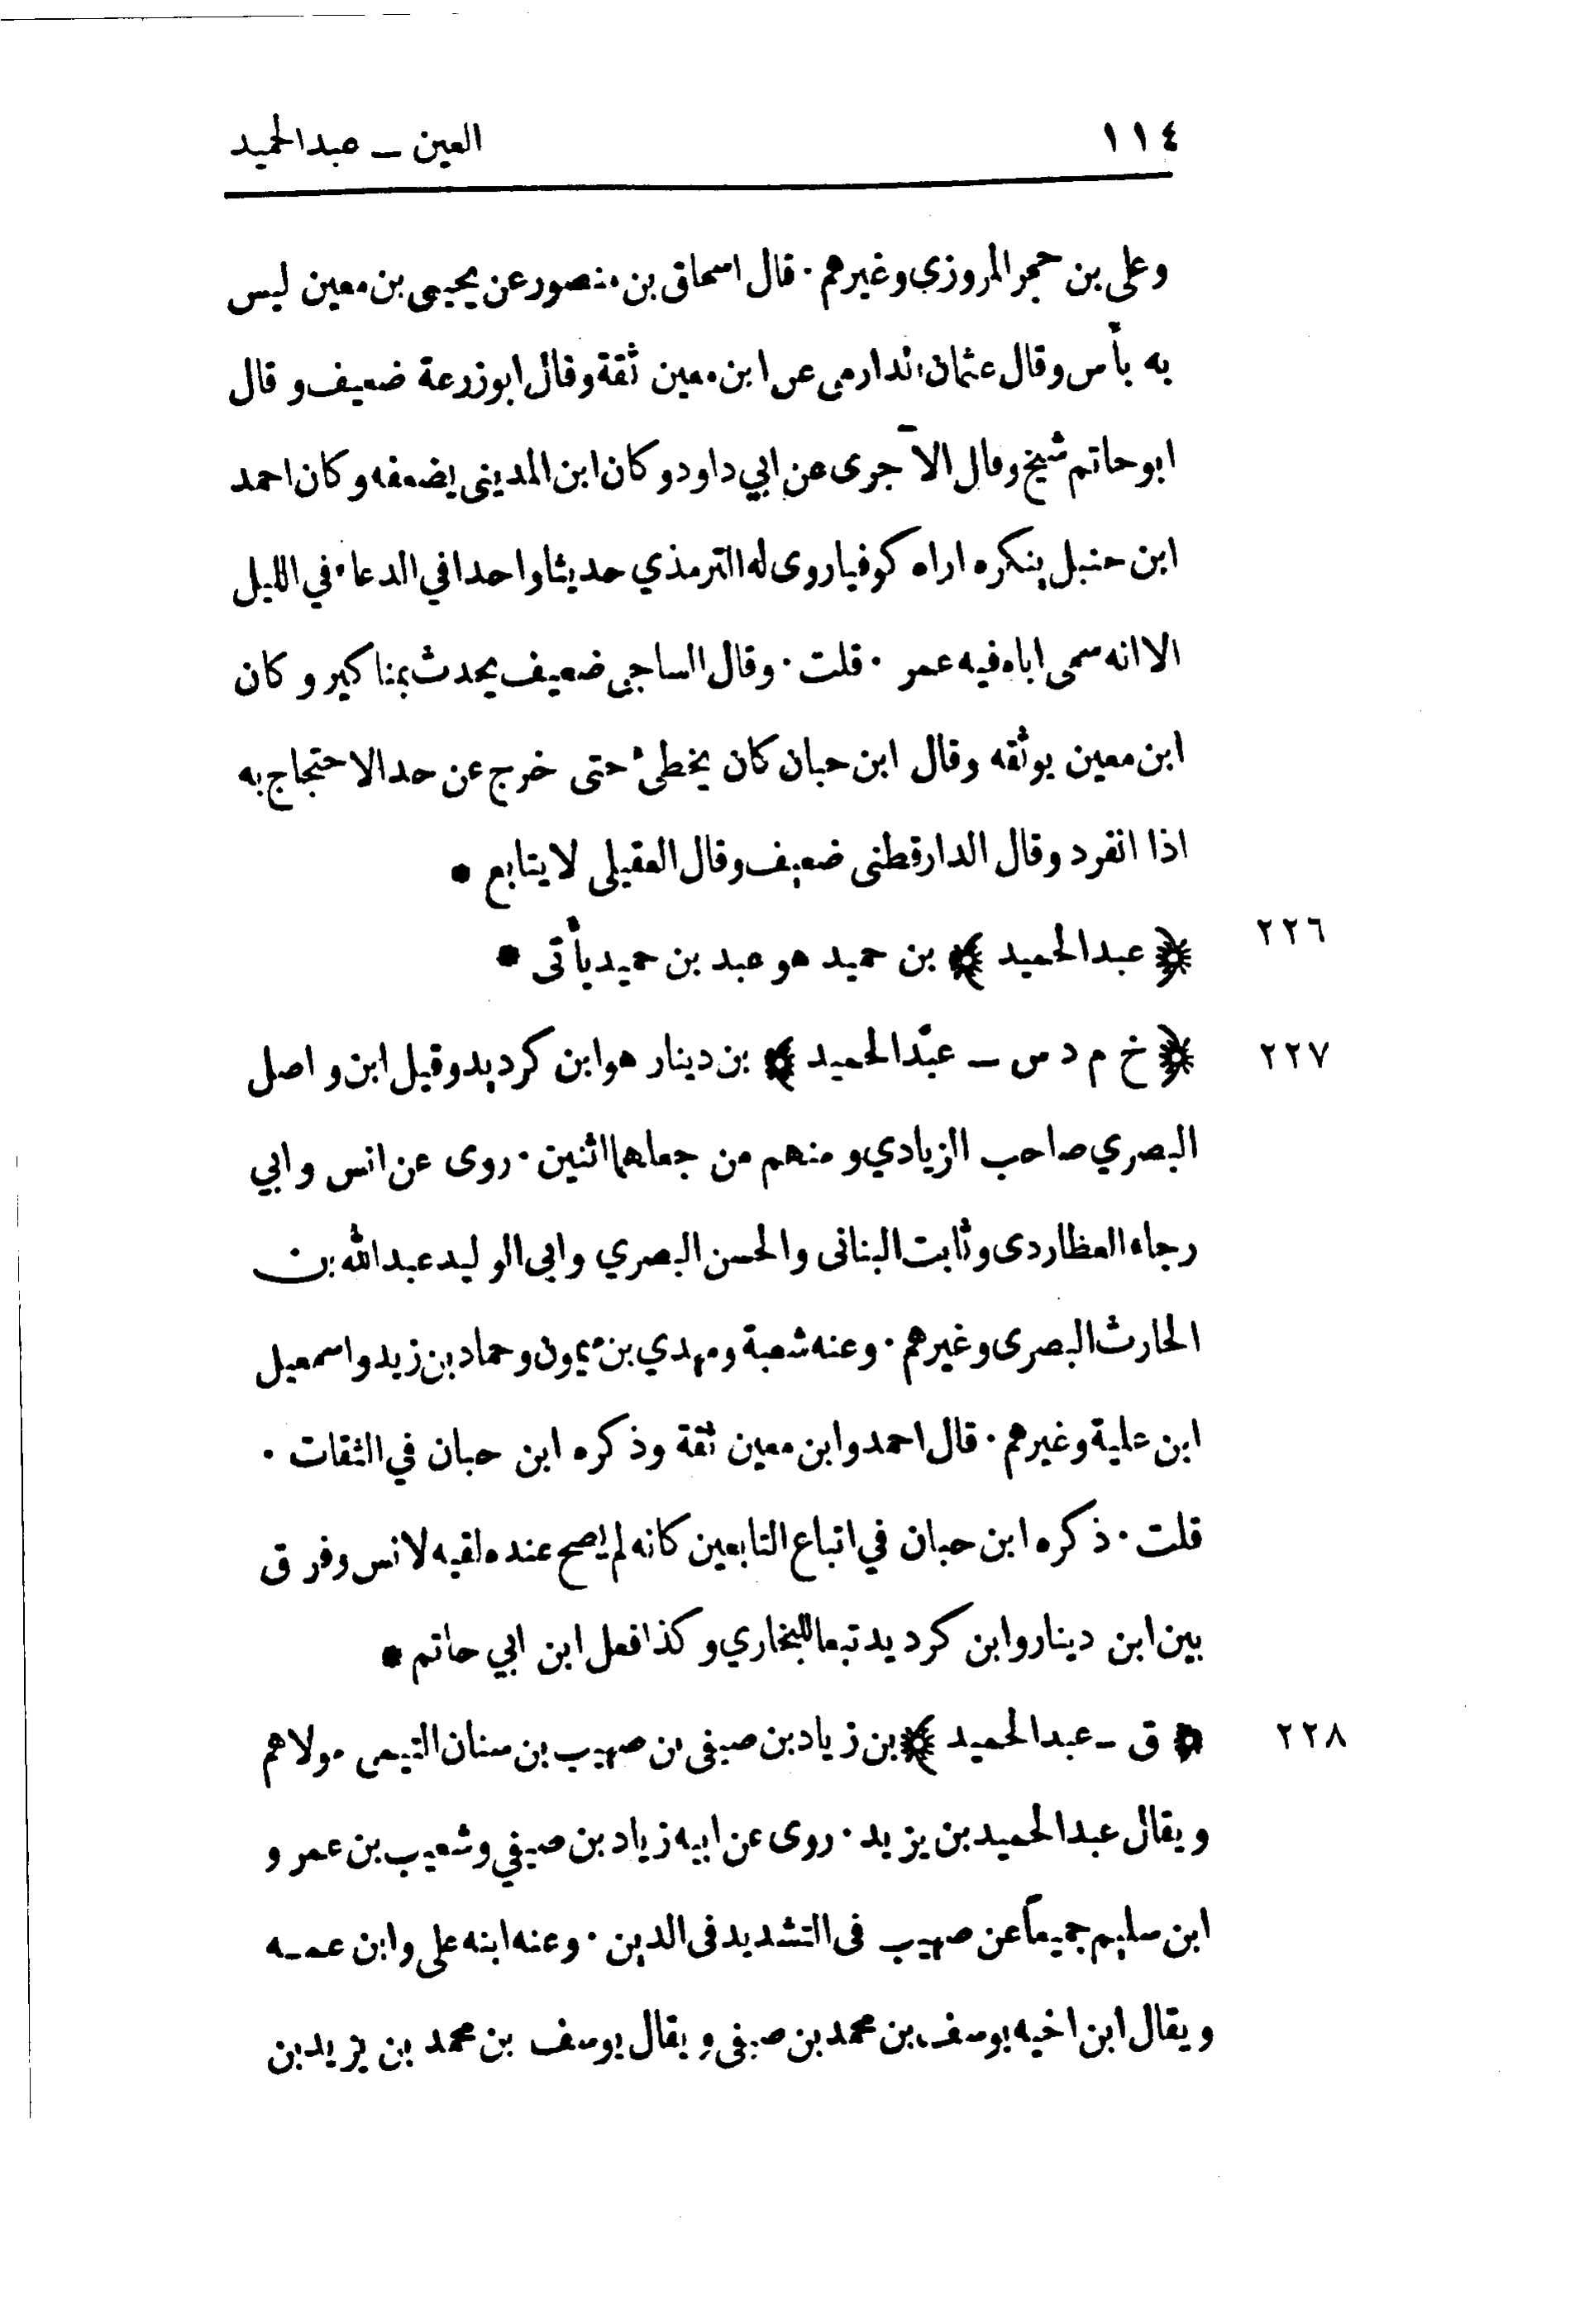 ١١٤
العين ـ عبدالحميد
وعلي بن حجر المروزي وغيرهم · قال اسحاق بن منصور عن يحيى بن معين ليس
به بأس وقال عثمان الدارمى عن ابن معين ثقة وقال ابو زرعة ضعيف و قال
ابو حاتم شيخ وقال الآجرى عن ابي داود و كان ابن المدينى يضعفه وكان احمد
ابن حنبل ينكره اراه كوفيا روى له الترمذي حديثا واحدا في الدعاء في الليل
الا انه سمى اباه فيه عمر · قلت · وقال الساجي ضعيف يحدث بمناكير و كان
ابن معين يوثقه وقال ابن حبان كان يخطئ حتى خرج عن حد الاحتجاج به
اذا انفرد وقال الدارقطنى ضعيف وقال العقيلى لا يتابع *
٢٢٦ ﴿ عبدالحميد ﴾ بن حميد هو عبد بن حميد يأتى *
٢٢٧ ﴿ خ م د س ـ عبدالحميد ﴾ بن دينار هو ابن كرديد وقيل ابن واصل
البصري صاحب الزيادي و منهم من جعلهما اثنين · روى عن انس وابي
رجاء العطاردى وثابت البنانى والحسن البصري وابى الوليد عبدالله بن
الحارث البصرى وغيرهم · وعنه شعبة ومهدي بن ميمون وحماد بن زيد واسمعيل
ابن علية وغيرهم · قال احمد وابن معين ثقة وذكره ابن حبان في الثقات ·
قلت · ذكره ابن حبان في اتباع التابعين كانه لم يصح عنده لقيه لانس وفرق
بين ابن دينار وابن كرديد تبعا للبخاري وكذا فعل ابن ابي حاتم *
٢٢٨ ﴿ ق ـ عبدالحميد ﴾ بن زياد بن صيفى بن صهيب بن سنان التيمى مولاهم
ويقال عبدالحميد بن يزيد · روى عن ابيه زياد بن صيفي وشعيب بن عمرو
ابن سليم جميعاً عن صهيب فى التشديد فى الدين · وعنه ابنه على وابن عمه
ويقال ابن اخيه يوسف بن محمد بن صيفى و يقال يوسف بن محمد بن يزيد بن